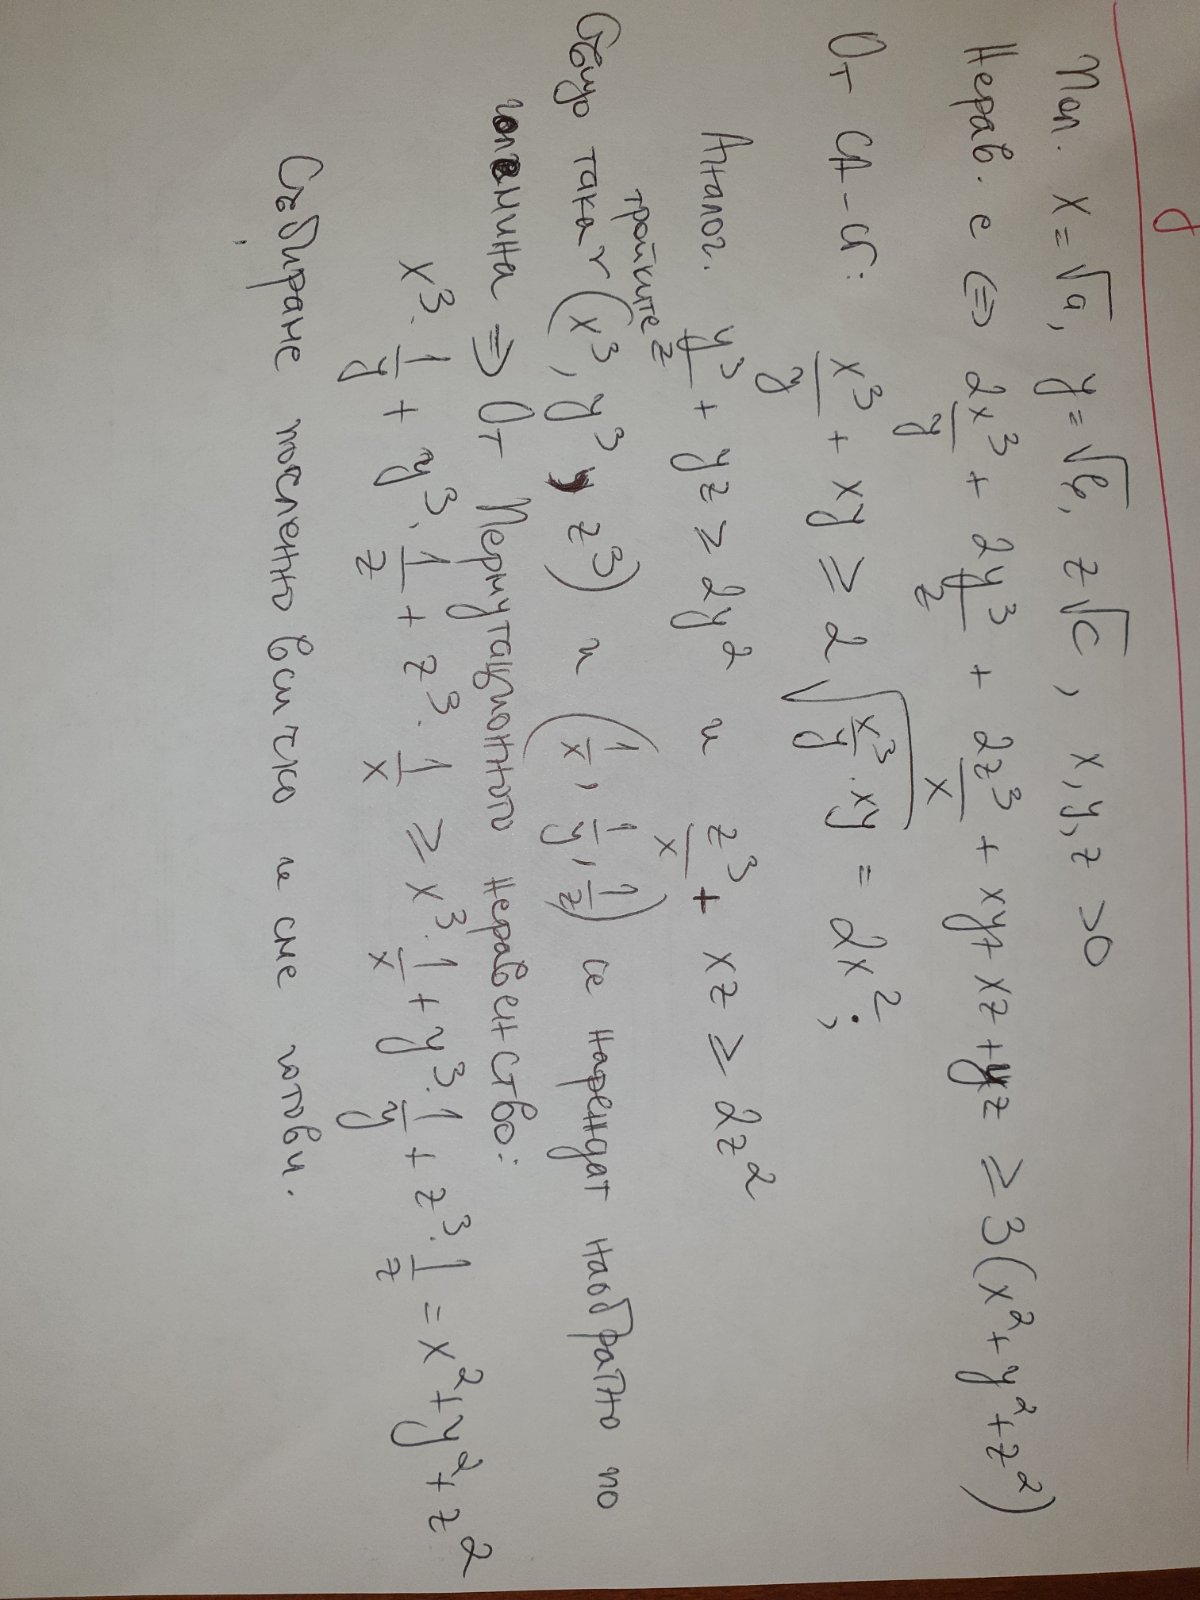 Пол. x = √a, y = √b, z √c, x, y, z > 0
Нерав. е ⇔ 2x³/y + 2y³/z + 2z³/x + xy + xz + yz ≥ 3(x² + y² + z²)
От СА-СГ: x³/y + xy ≥ 2√(x³/y · xy) = 2x²;
Аналог. y³/z + yz ≥ 2y² и z³/x + xz ≥ 2z²
Също така тройките (x³, y³, z³) и (1/x, 1/y, 1/z) се нареждат наобратно по
големина ⇒ От Пермутационното неравенство:
x³ · 1/y + y³ · 1/z + z³ · 1/x ≥ x³ · 1/x + y³ · 1/y + z³ · 1/z = x² + y² + z²
Събираме почленно всичко и сме готови.